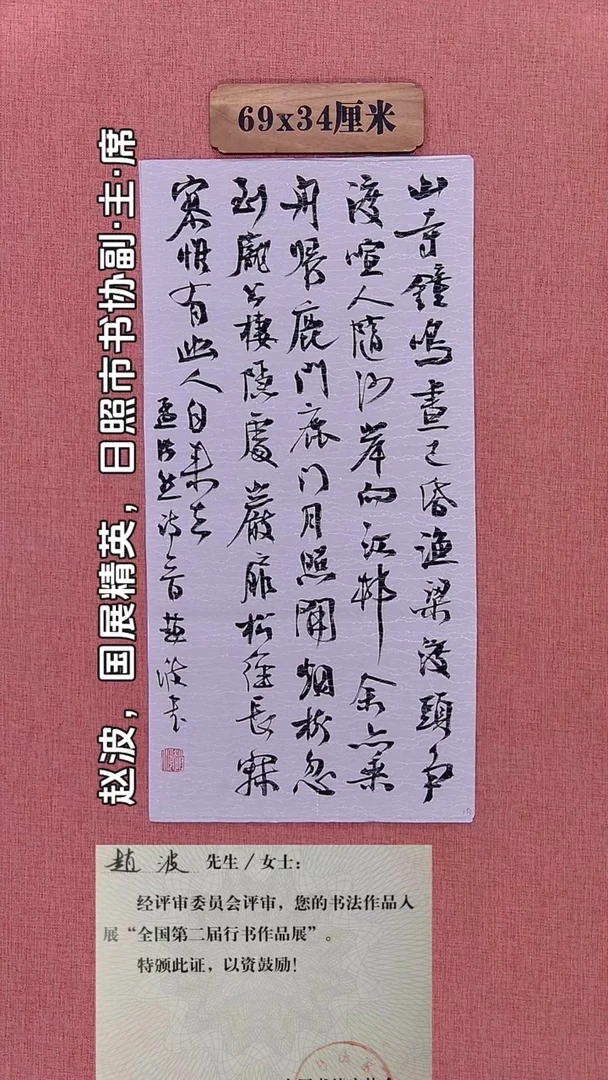 69x34厘米
赵波，国展精英，日照市书协副·主·席
山寺鐘鳴晝已昏漁梁渡頭爭
渡喧人隨沙岸向江邨余亦乘
舟歸鹿門鹿門月照開烟樹忽
到龐公棲隱處巖扉松徑長寂
寥惟有幽人自来去
孟浩然诗一首趙波書
趙波 先生/女士：
经评审委员会评审，您的书法作品入
展“全国第二届行书作品展”。
特颁此证，以资鼓励！